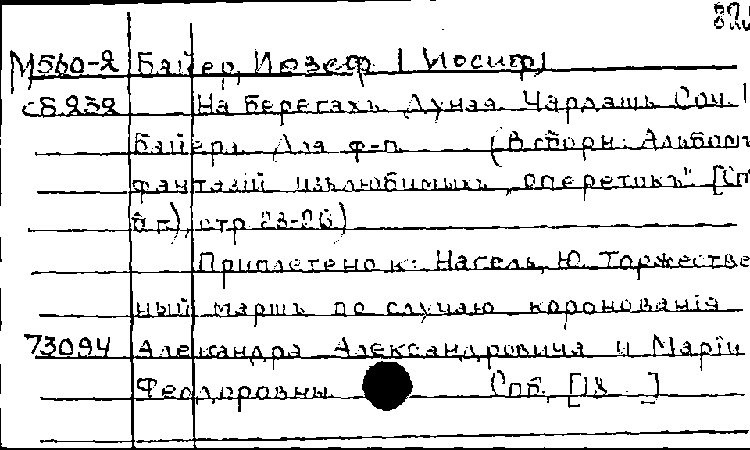 М560-2 Байер, Иозеф (Иосиф)
сб.232 На берегахъ Дуная. Чардашъ Соч.
Байера. Для ф-п. (В сборн: Альбомъ
фантазій изъ любимыхъ "оперетокъ". [Сп
б г.), стр. 23-26)
Приплетено к: Нагель, Ю. Торжестве
ный маршъ по случаю коронованія
73094 Александра Александровича и Маріи
Феодоровны. Спб, [18 ]